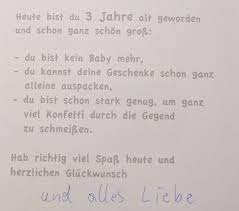 Heute bist du 3 Jahre alt geworden
und schon ganz schön groß:
- du bist kein Baby mehr,
- du kannst deine Geschenke schon ganz
alleine auspacken,
- du bist schon stark genug, um ganz
viel Konfetti durch die Gegend
zu schmeißen.
Hab richtig viel Spaß heute und
herzlichen Glückwunsch
und alles Liebe